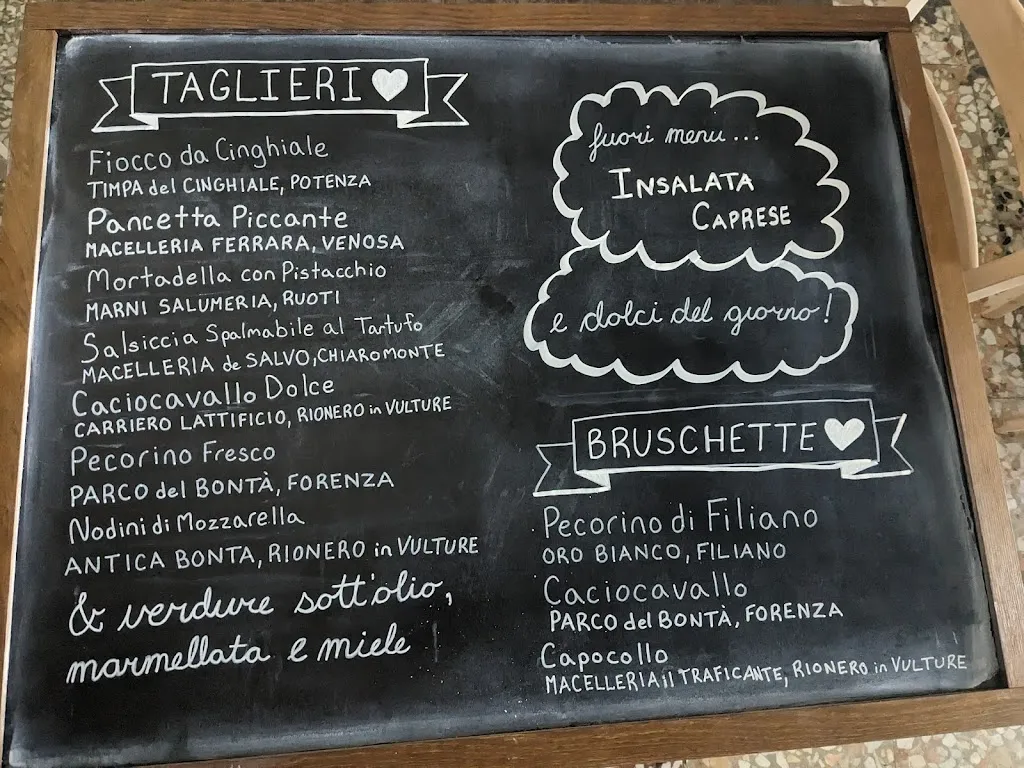 TAGLIERI
Fiocco da Cinghiale
TIMPA del CINGHIALE, POTENZA
Pancetta Piccante
MACELLERIA FERRARA, VENOSA
Mortadella con Pistacchio
MARNI SALUMERIA, RUOTI
Salsiccia Spalmabile al Tartufo
MACELLERIA de SALVO, CHIAROMONTE
Caciocavallo Dolce
CARRIERO LATTIFICIO, RIONERO in VULTURE
Pecorino Fresco
PARCO del BONTÀ, FORENZA
Nodini di Mozzarella
ANTICA BONTA, RIONERO in VULTURE
& verdure sott'olio,
marmellata e miele
fuori menu...
INSALATA
CAPRESE
e dolci del giorno!
BRUSCHETTE
Pecorino di Filiano
ORO BIANCO, FILIANO
Caciocavallo
PARCO del BONTÀ, FORENZA
Capocollo
MACELLERIA il TRAFICANTE, RIONERO in VULTURE